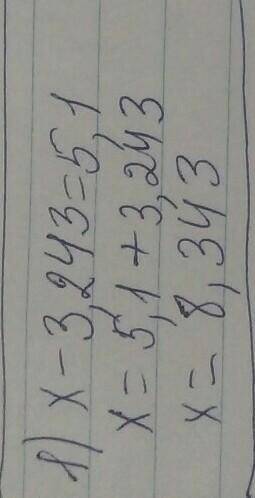 8) x - 3,243 = 5,1
x = 5,1 + 3,243
x = 8,343